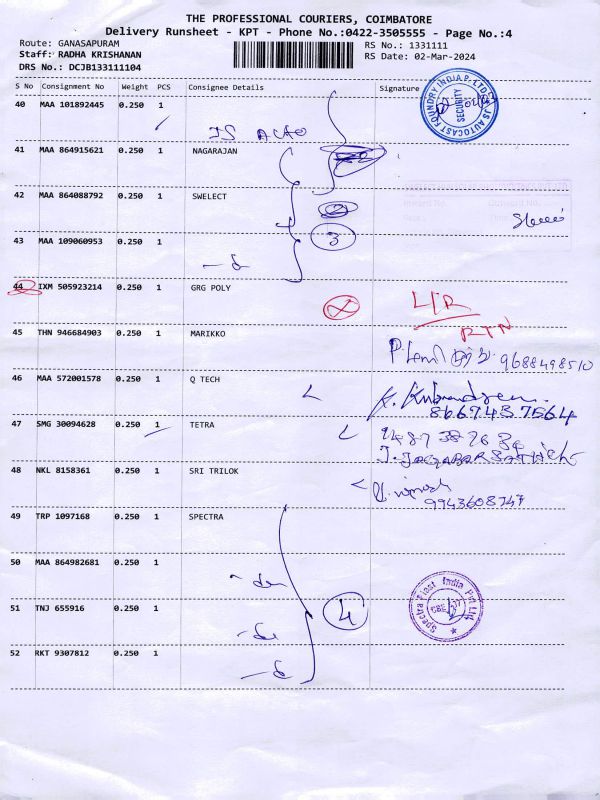 THE PROFESSIONAL COURIERS, COIMBATORE
Delivery Runsheet - KPT - Phone No.:0422-3505555 - Page No.:4
Route: GANASAPURAM
Staff: RADHA KRISHANAN
DRS No.: DCJB133111104
RS No.: 1331111
RS Date: 02-Mar-2024
S No Consignment No Weight PCS Consignee Details Signature
40 MAA 101892445 0.250 1
JS Auto
JS AUTOCAST FOUNDRY INDIA P. LTD.
SECURITY
41 MAA 864915621 0.250 1 NAGARAJAN
42 MAA 864088792 0.250 1 SWELECT
43 MAA 109060953 0.250 1
3
44 IXM 505923214 0.250 1 GRG POLY
RTN
45 THN 946684903 0.250 1 MARIKKO
9688498510
46 MAA 572001578 0.250 1 Q TECH
8667437564
47 SMG 30094628 0.250 1 TETRA
48 NKL 8158361 0.250 1 SRI TRILOK
9943608747
49 TRP 1097168 0.250 1 SPECTRA
50 MAA 864982681 0.250 1
51 TNJ 655916 0.250 1
4
Spectra Plast India Pvt Ltd
52 RKT 9307812 0.250 1